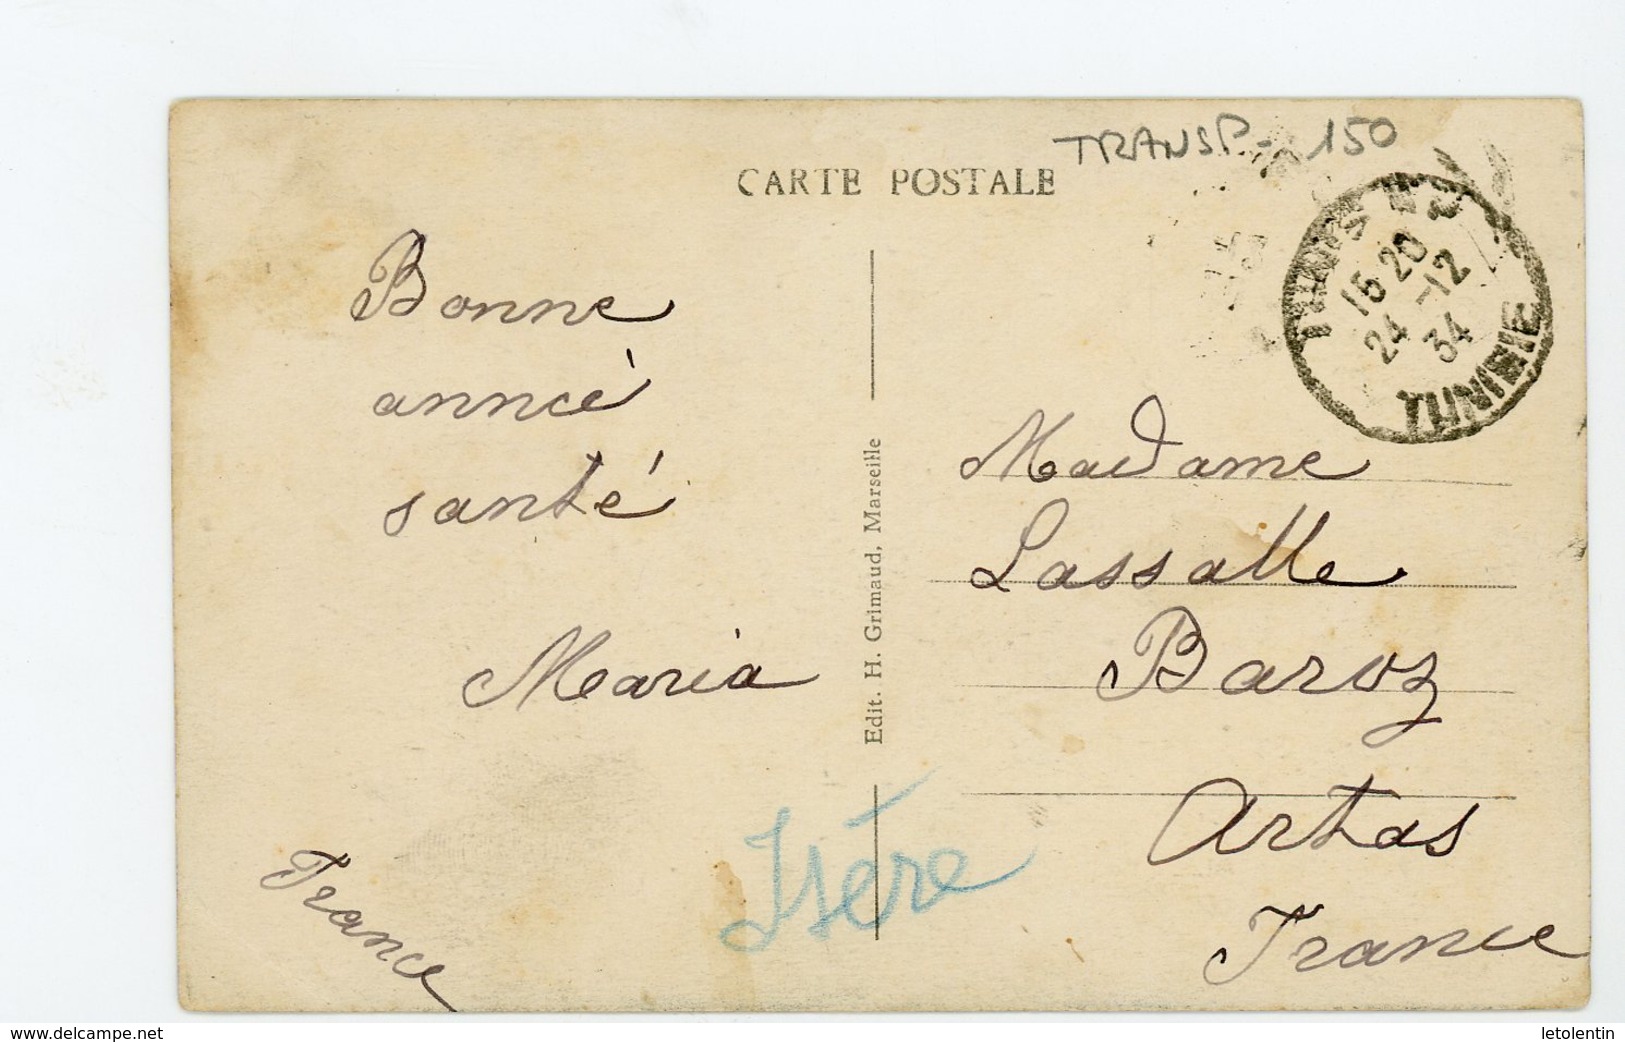 TRANSP - 150
CARTE POSTALE
TUNIS R.P
15 20
24 -12
34
TUNISIE
Bonne
anneé
santé
Maria
France
Edit. H. Grimaud, Marseille
Madame
Lassalle
Baroz
Artas
France
Isère
www.delcampe.net
letolentin